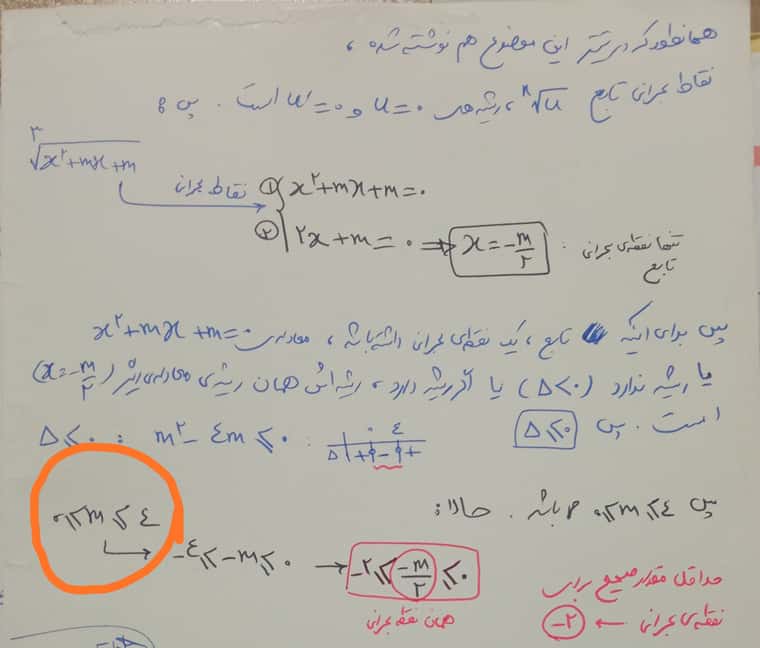 همانطور که در تیتر این موضوع هم نوشته شده ،
نقاط بحرانی تابع ⁿ√u ، ریشه‌های u=۰ و u'=۰ است . پس :
³√x²+mx+m
نقاط بحرانی ① x²+mx+m=۰
② ۲x+m=۰ ⇒ x=-m/۲ : تنها نقطه‌ی بحرانی تابع
پس برای اینکه تابع ، یک نقطه‌ی بحرانی داشته باشد ، معادله‌ی x²+mx+m=۰
یا ریشه ندارد (Δ<۰) یا اگر ریشه دارد ، ریشه‌اش همان ریشه‌ی معادله‌ی (x=-m/۲)
است . پس Δ≤۰
Δ≤۰ : m²-٤m≤۰ : ۰ ٤
Δ + ۰ - ۰ +
پس ۰≤m≤٤ باشد . حالا :
۰≤m≤٤
-٤≤-m≤۰ → -۲≤-m/۲≤۰
همان نقطه بحرانی
حداقل مقدار صحیح برای
نقطه‌ی بحرانی ← -۲